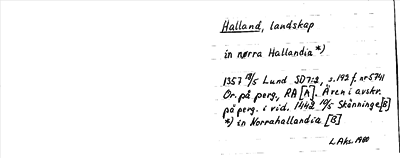 Halland, landskap
in nørra Hallandia *)
1357 18/5 Lund SD 7:2, s. 192 f. nr 5741
Or. på perg., RA [A]. Även i avskr.
på perg. i vid. 1442 19/5 Skänninge [B]
*) in Norrahallandia [B]
LAhs. 1980